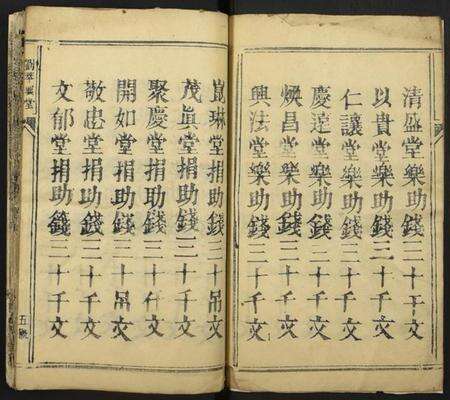 清盛堂樂助錢二十千文
以貴堂樂助錢二十千文
仁讓堂樂助錢二十千文
慶達堂樂助錢二十千文
煥昌堂樂助錢二十千文
興法堂樂助錢二十千文
崑琳堂捐助錢二十吊文
茂真堂捐助錢二十千文
聚慶堂捐助錢二十仟文
開如堂捐助錢二十吊文
敬忠堂捐助錢二十千文
文郁堂捐助錢二十千文